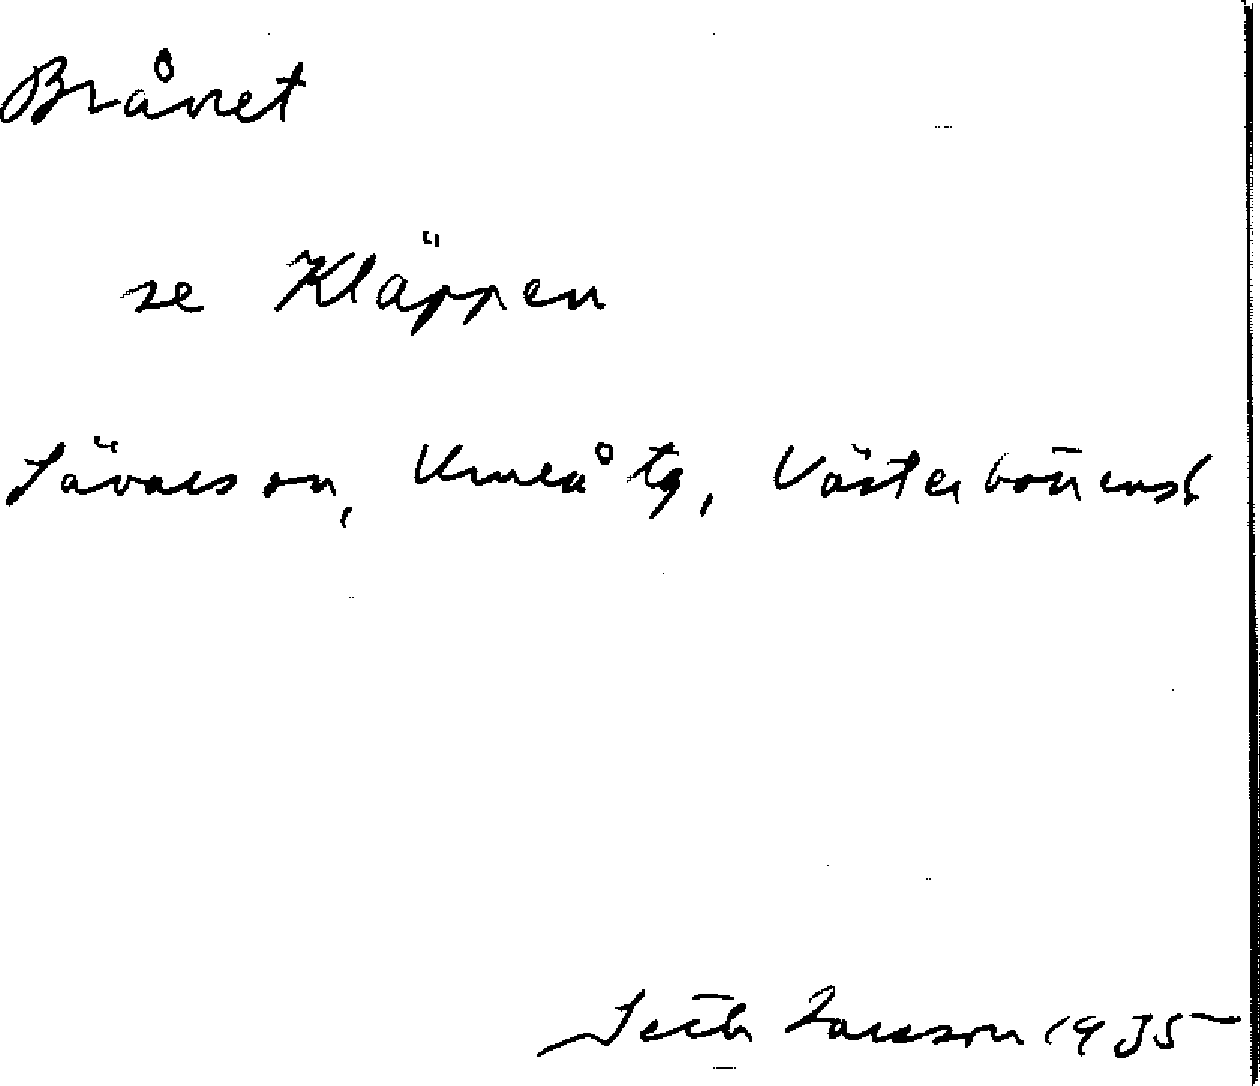 Brånet
se Kläppen
Sävarssn, Umeå tg, Västerbottensl
Seth Larsson 1935